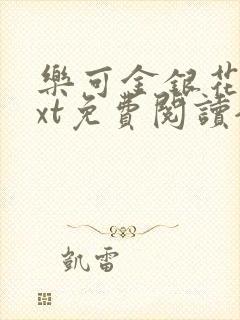 樂可金銀花
xt免費閱讀
凱雷